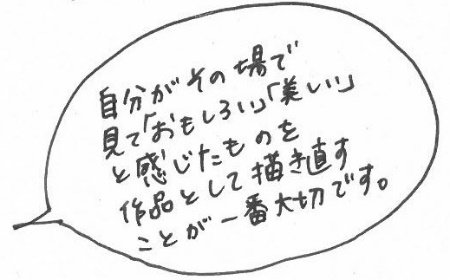 自分がその場で
見て「おもしろい」「美しい」
と感じたものを
作品として描き直す
ことが一番大切です。